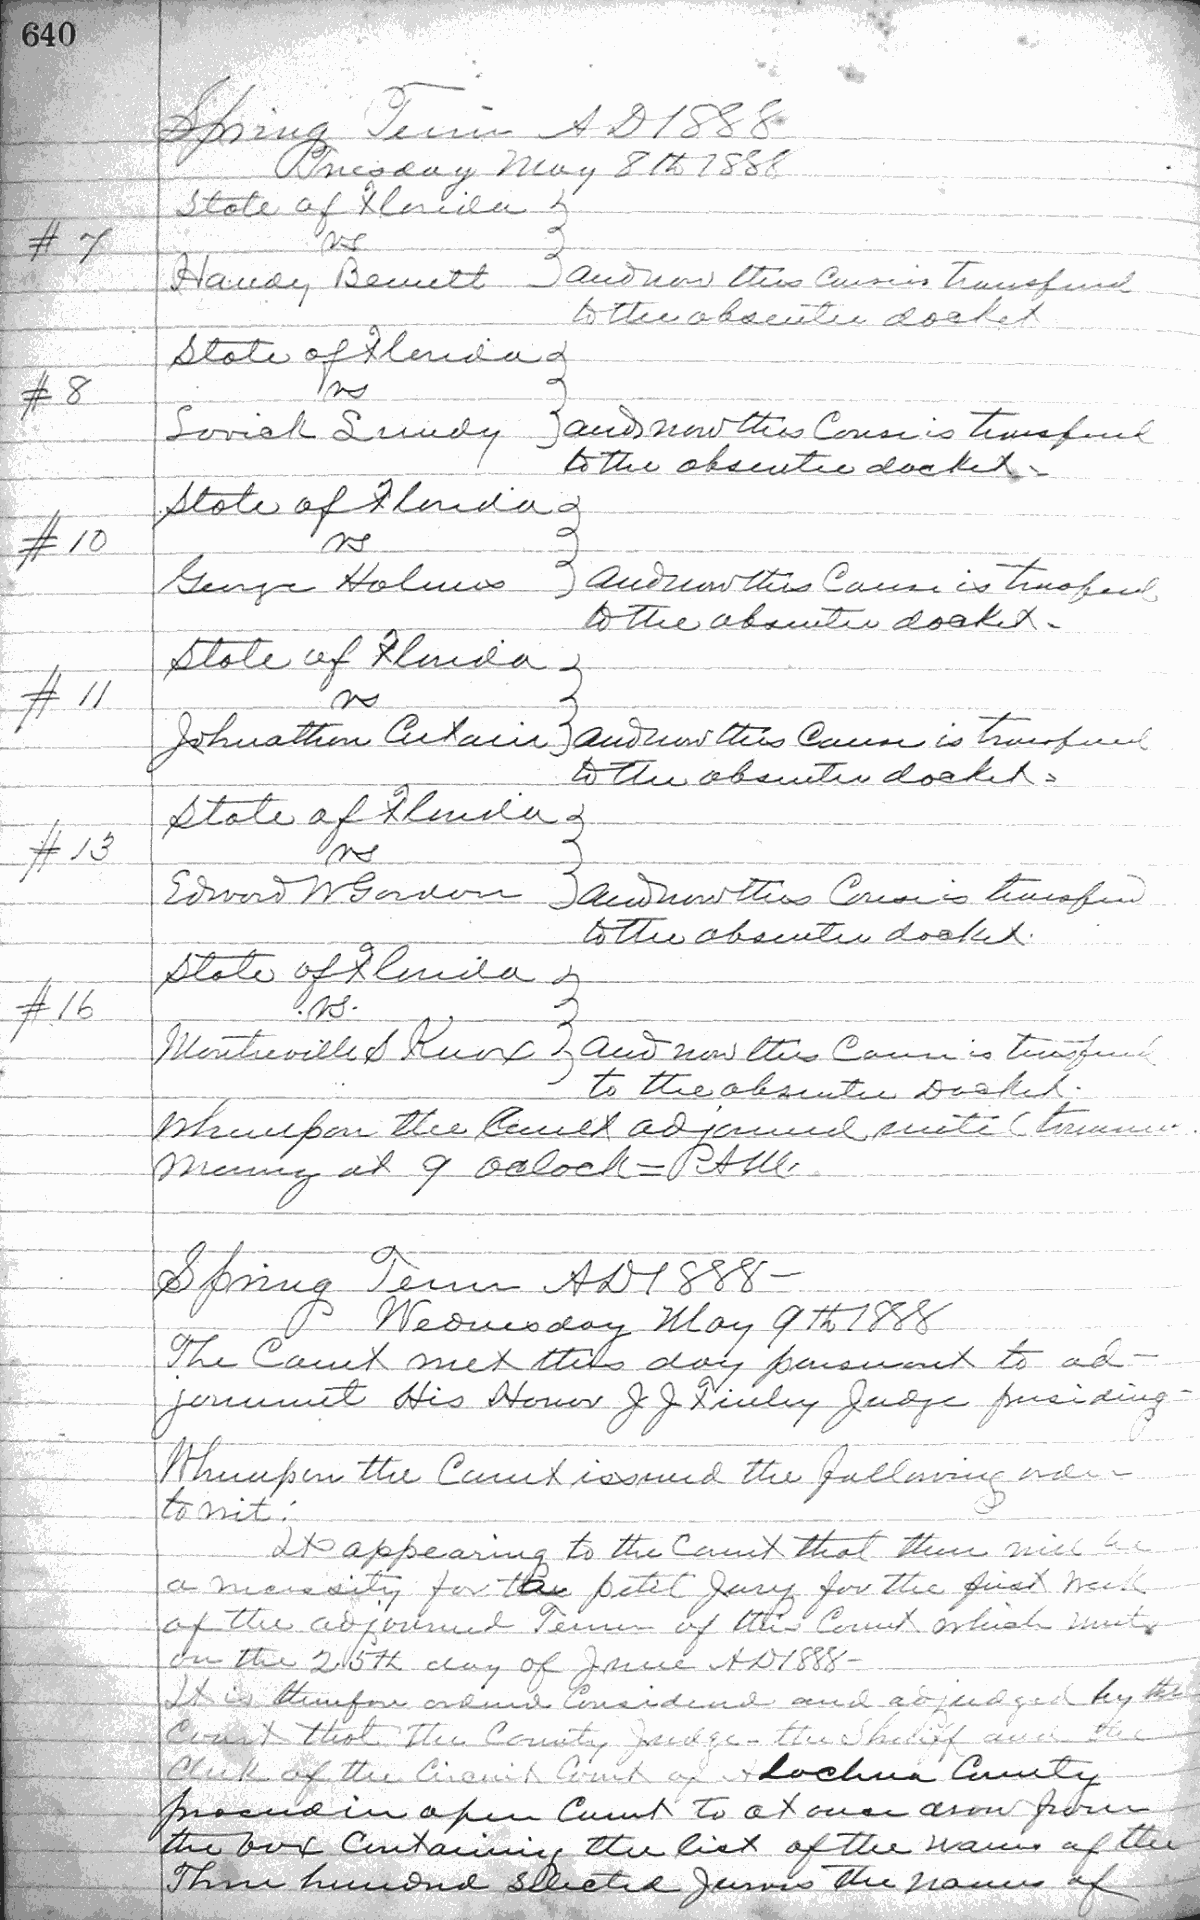 640
Spring Term AD 1888
Tuesday May 8th 1888
State of Florida
# 7 vs
Handy Bennett } and now this Cause is transferred
to the absentee docket
State of Florida
# 8 vs
Lovick Lundy } and now this Cause is transferred
to the absentee docket -
State of Florida
# 10 vs
George Holmes } and now this Cause is transferred
to the absentee docket -
State of Florida
# 11 vs
Johnathon } and now this Cause is transferred
to the absentee docket =
State of Florida
# 13 vs
Edward W Gordon } and now this Cause is transferred
to the absentee docket.
State of Florida
# 16 vs.
Montreville S Knox } and now this Cause is transferred
to the absentee Docket.
Whereupon the Court adjourned until tomorrow
Morning at 9 oclock =
Spring Term AD 1888 -
Wednesday May 9th 1888
The Court met this day pursuant to ad-
journment His Honor J J Finley Judge presiding -
Whereupon the Court issued the following order
to wit:
It appearing to the Court that there will be
a necessity for the petit Jury for the first Week
of the adjourned Term of this Court which meets
on the 25th day of June AD 1888 -
It is therefore ordered Considered and adjudged by the
Court that the County Judge - the Sheriff and the
Clerk of the Circuit Court of Alachua County
proceed in open Court to at once draw from
the box Containing the list of the names of the
Three hundred selected Jurors the names of